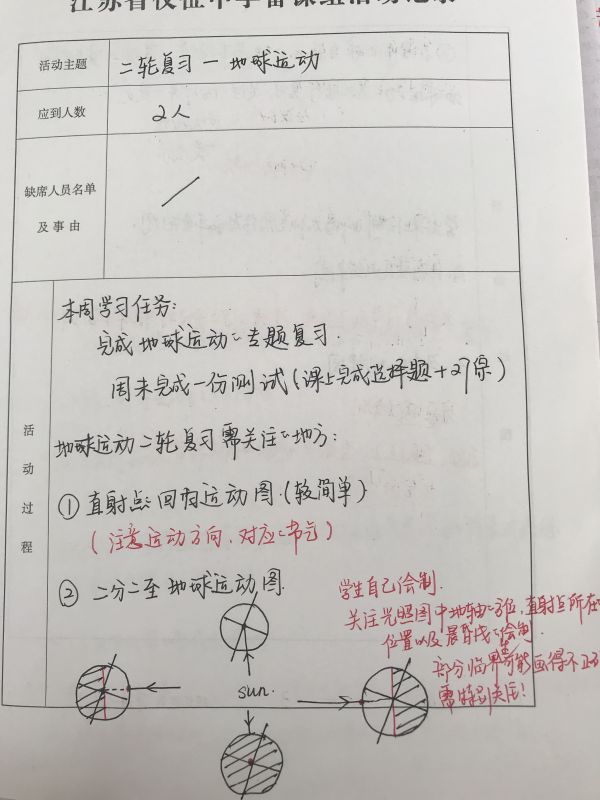 江苏省板桥中学备课组活动记录
活动主题
二轮复习一地球运动
应到人数
2人
缺席人员名单
及事由
活动过程
本周学习任务:
完成地球运动的专题复习.
周末完成一份测试(课上完成选择题+27题)
地球运动二轮复习需关注的地方:
① 直射点的回归运动图.(较简单)
(注意运动方向.对应的节气)
② 二分二至地球运动图.
学生自己绘制.
关注光照图中地轴的方位,直射点所在
位置以及晨昏线的绘制.
部分临界生可能画得不正确
需特别关注!
sun.